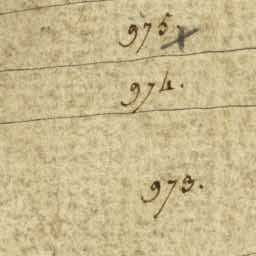 975.
974.
973.